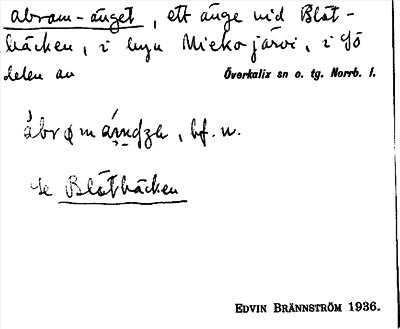 abram-änget, ett änge vid Blåt-
bäcken, i byn Miekojärvi, i sö
delen av Överkalix sn o. tg. Norrb. l.
bf. n.
se Blåtbäcken
EDVIN BRÄNNSTRÖM 1936.